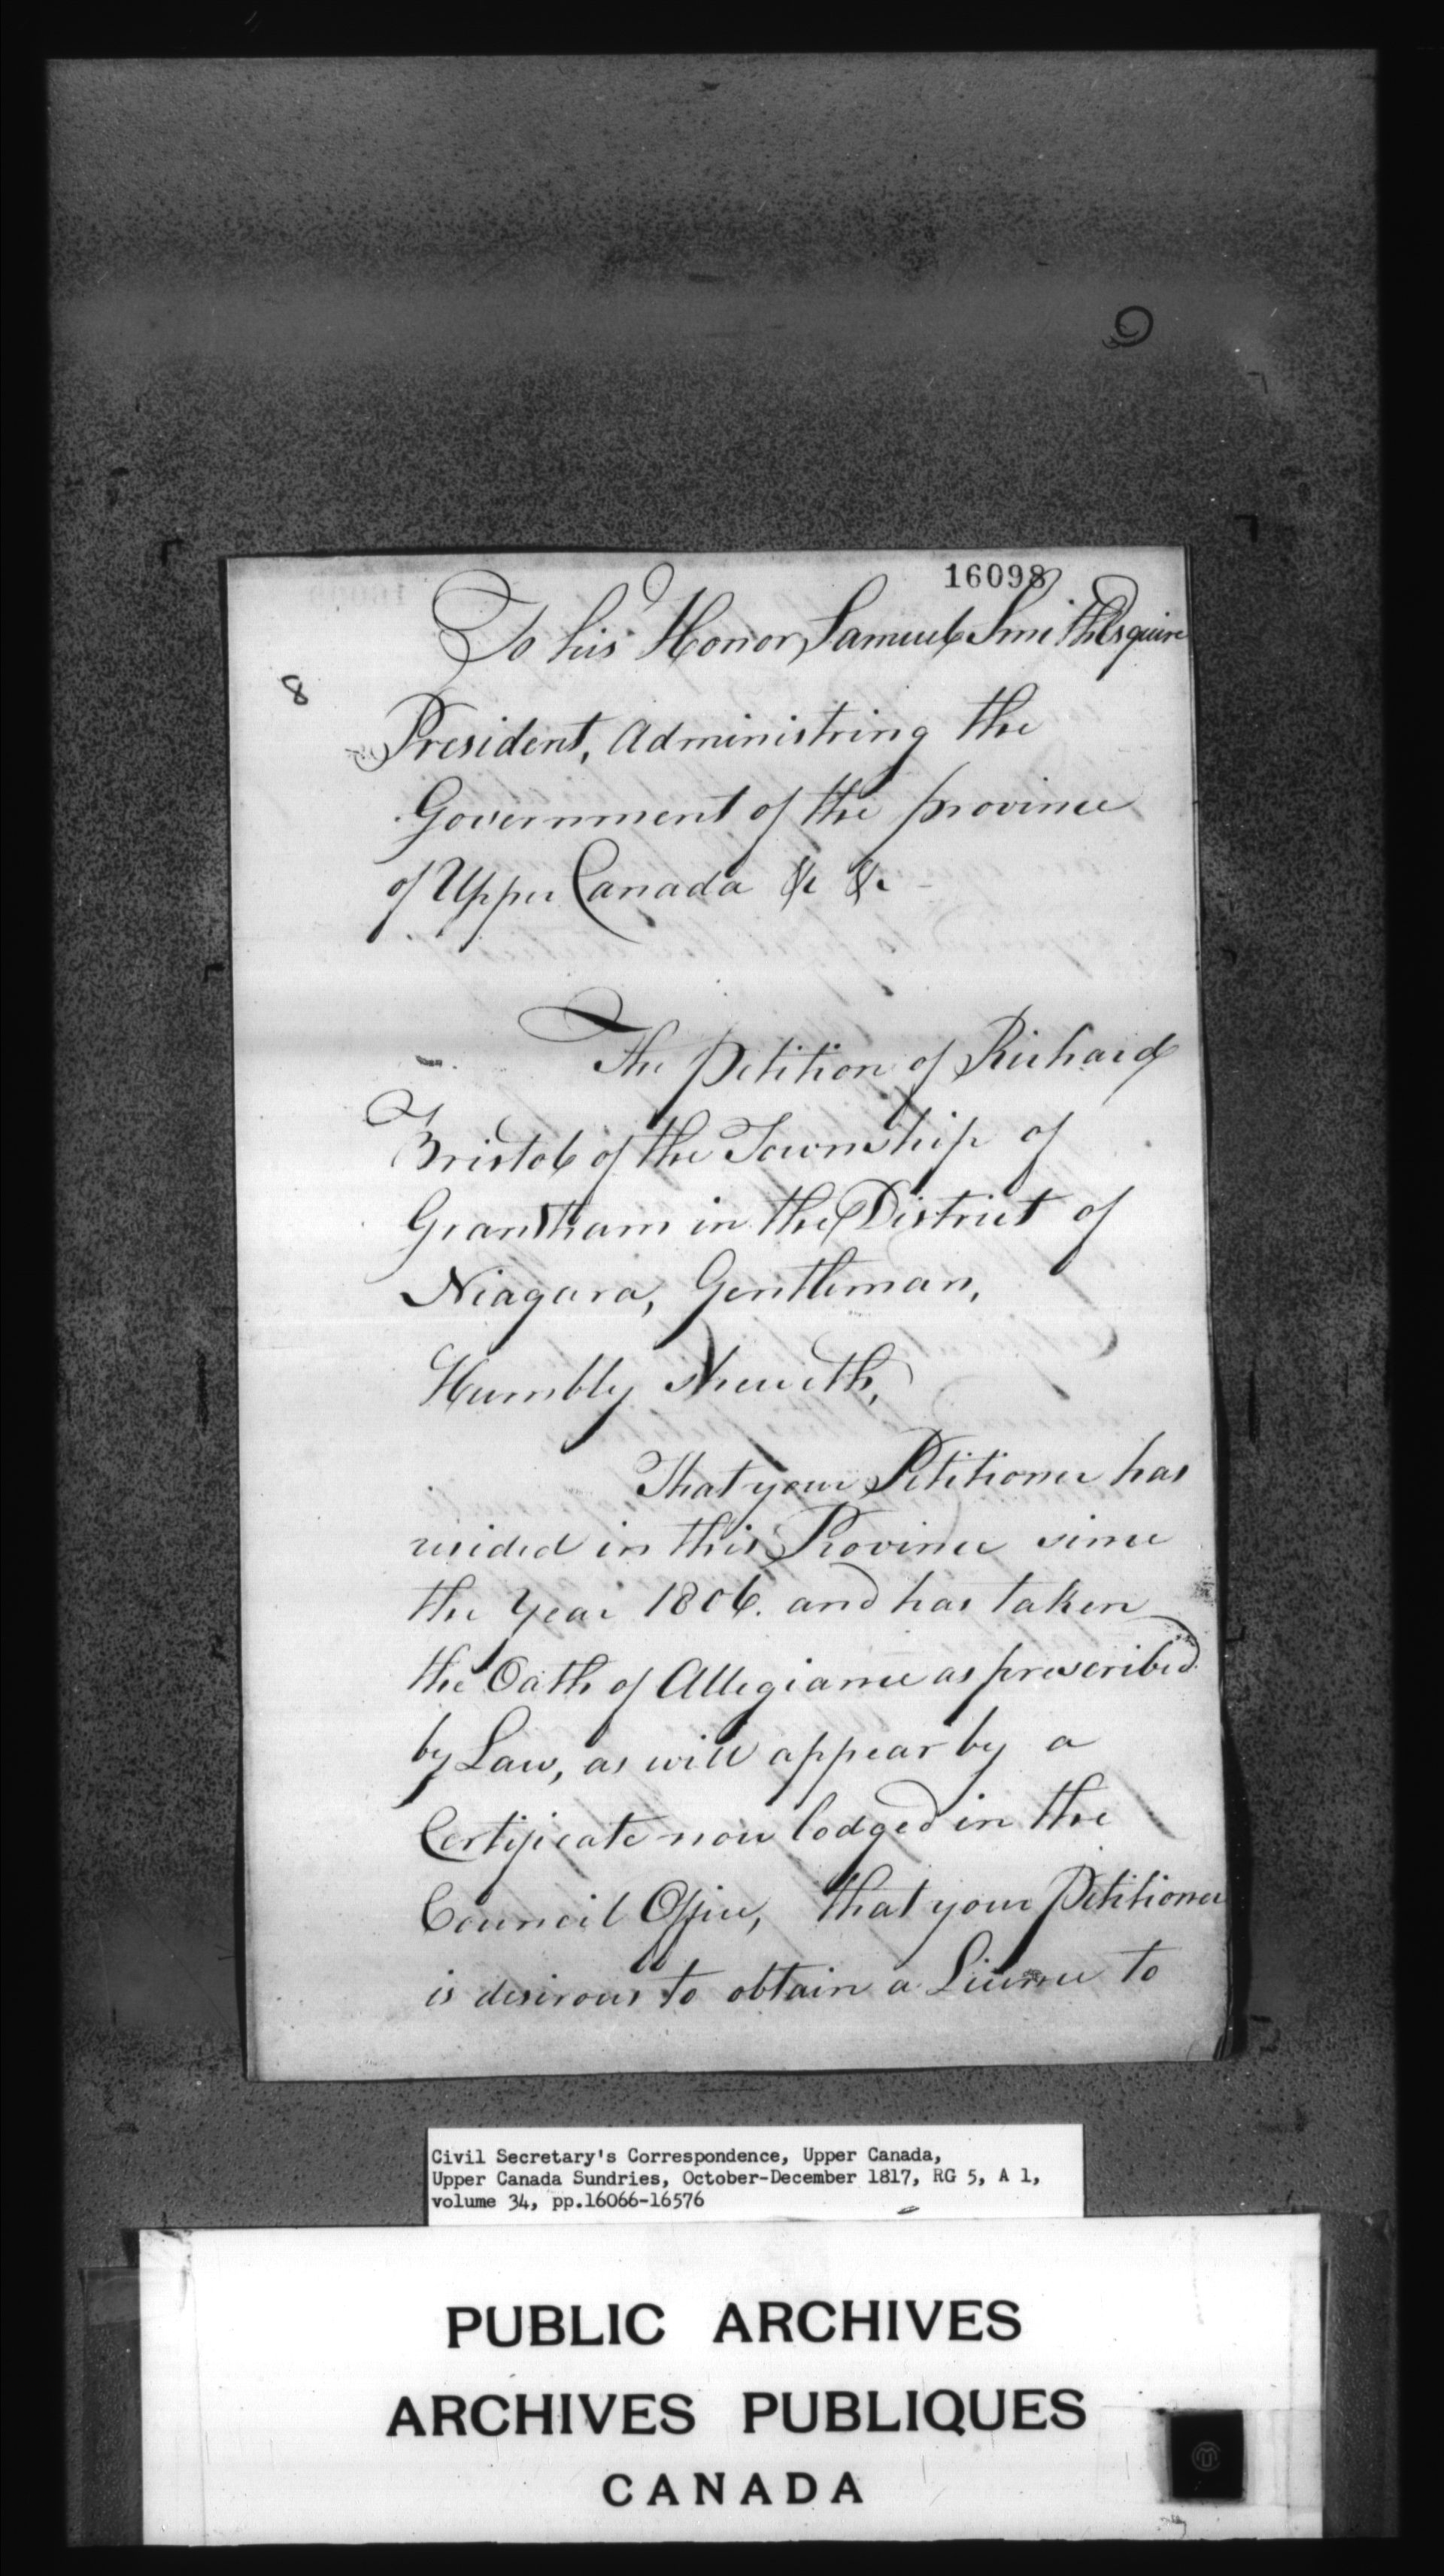 9
16098
To his Honor, Samuel Smith Esquire
8
President, Administring the
Government of the province
of Upper Canada &c &c
The Petition of Richard
Bristol of the Township of
Grantham in the District of
Niagara, Gentleman,
Humbly sheweth,
That your Petitioner has
resided in this Province since
the Year 1806. and has taken
the Oath of Allegiance as prescribed
by Law, as will appear by a
Certificate now lodged in the
Council Office, that your Petitioner
is desirous to obtain a License to
Civil Secretary's Correspondence, Upper Canada,
Upper Canada Sundries, October-December 1817, RG 5, A 1,
volume 34, pp.16066-16576
PUBLIC ARCHIVES
ARCHIVES PUBLIQUES
CANADA